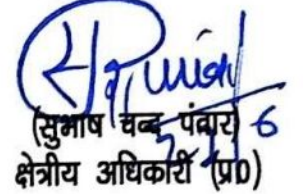 (सुभाष चन्द पंवार)
क्षेत्रीय अधिकारी (प्र0)